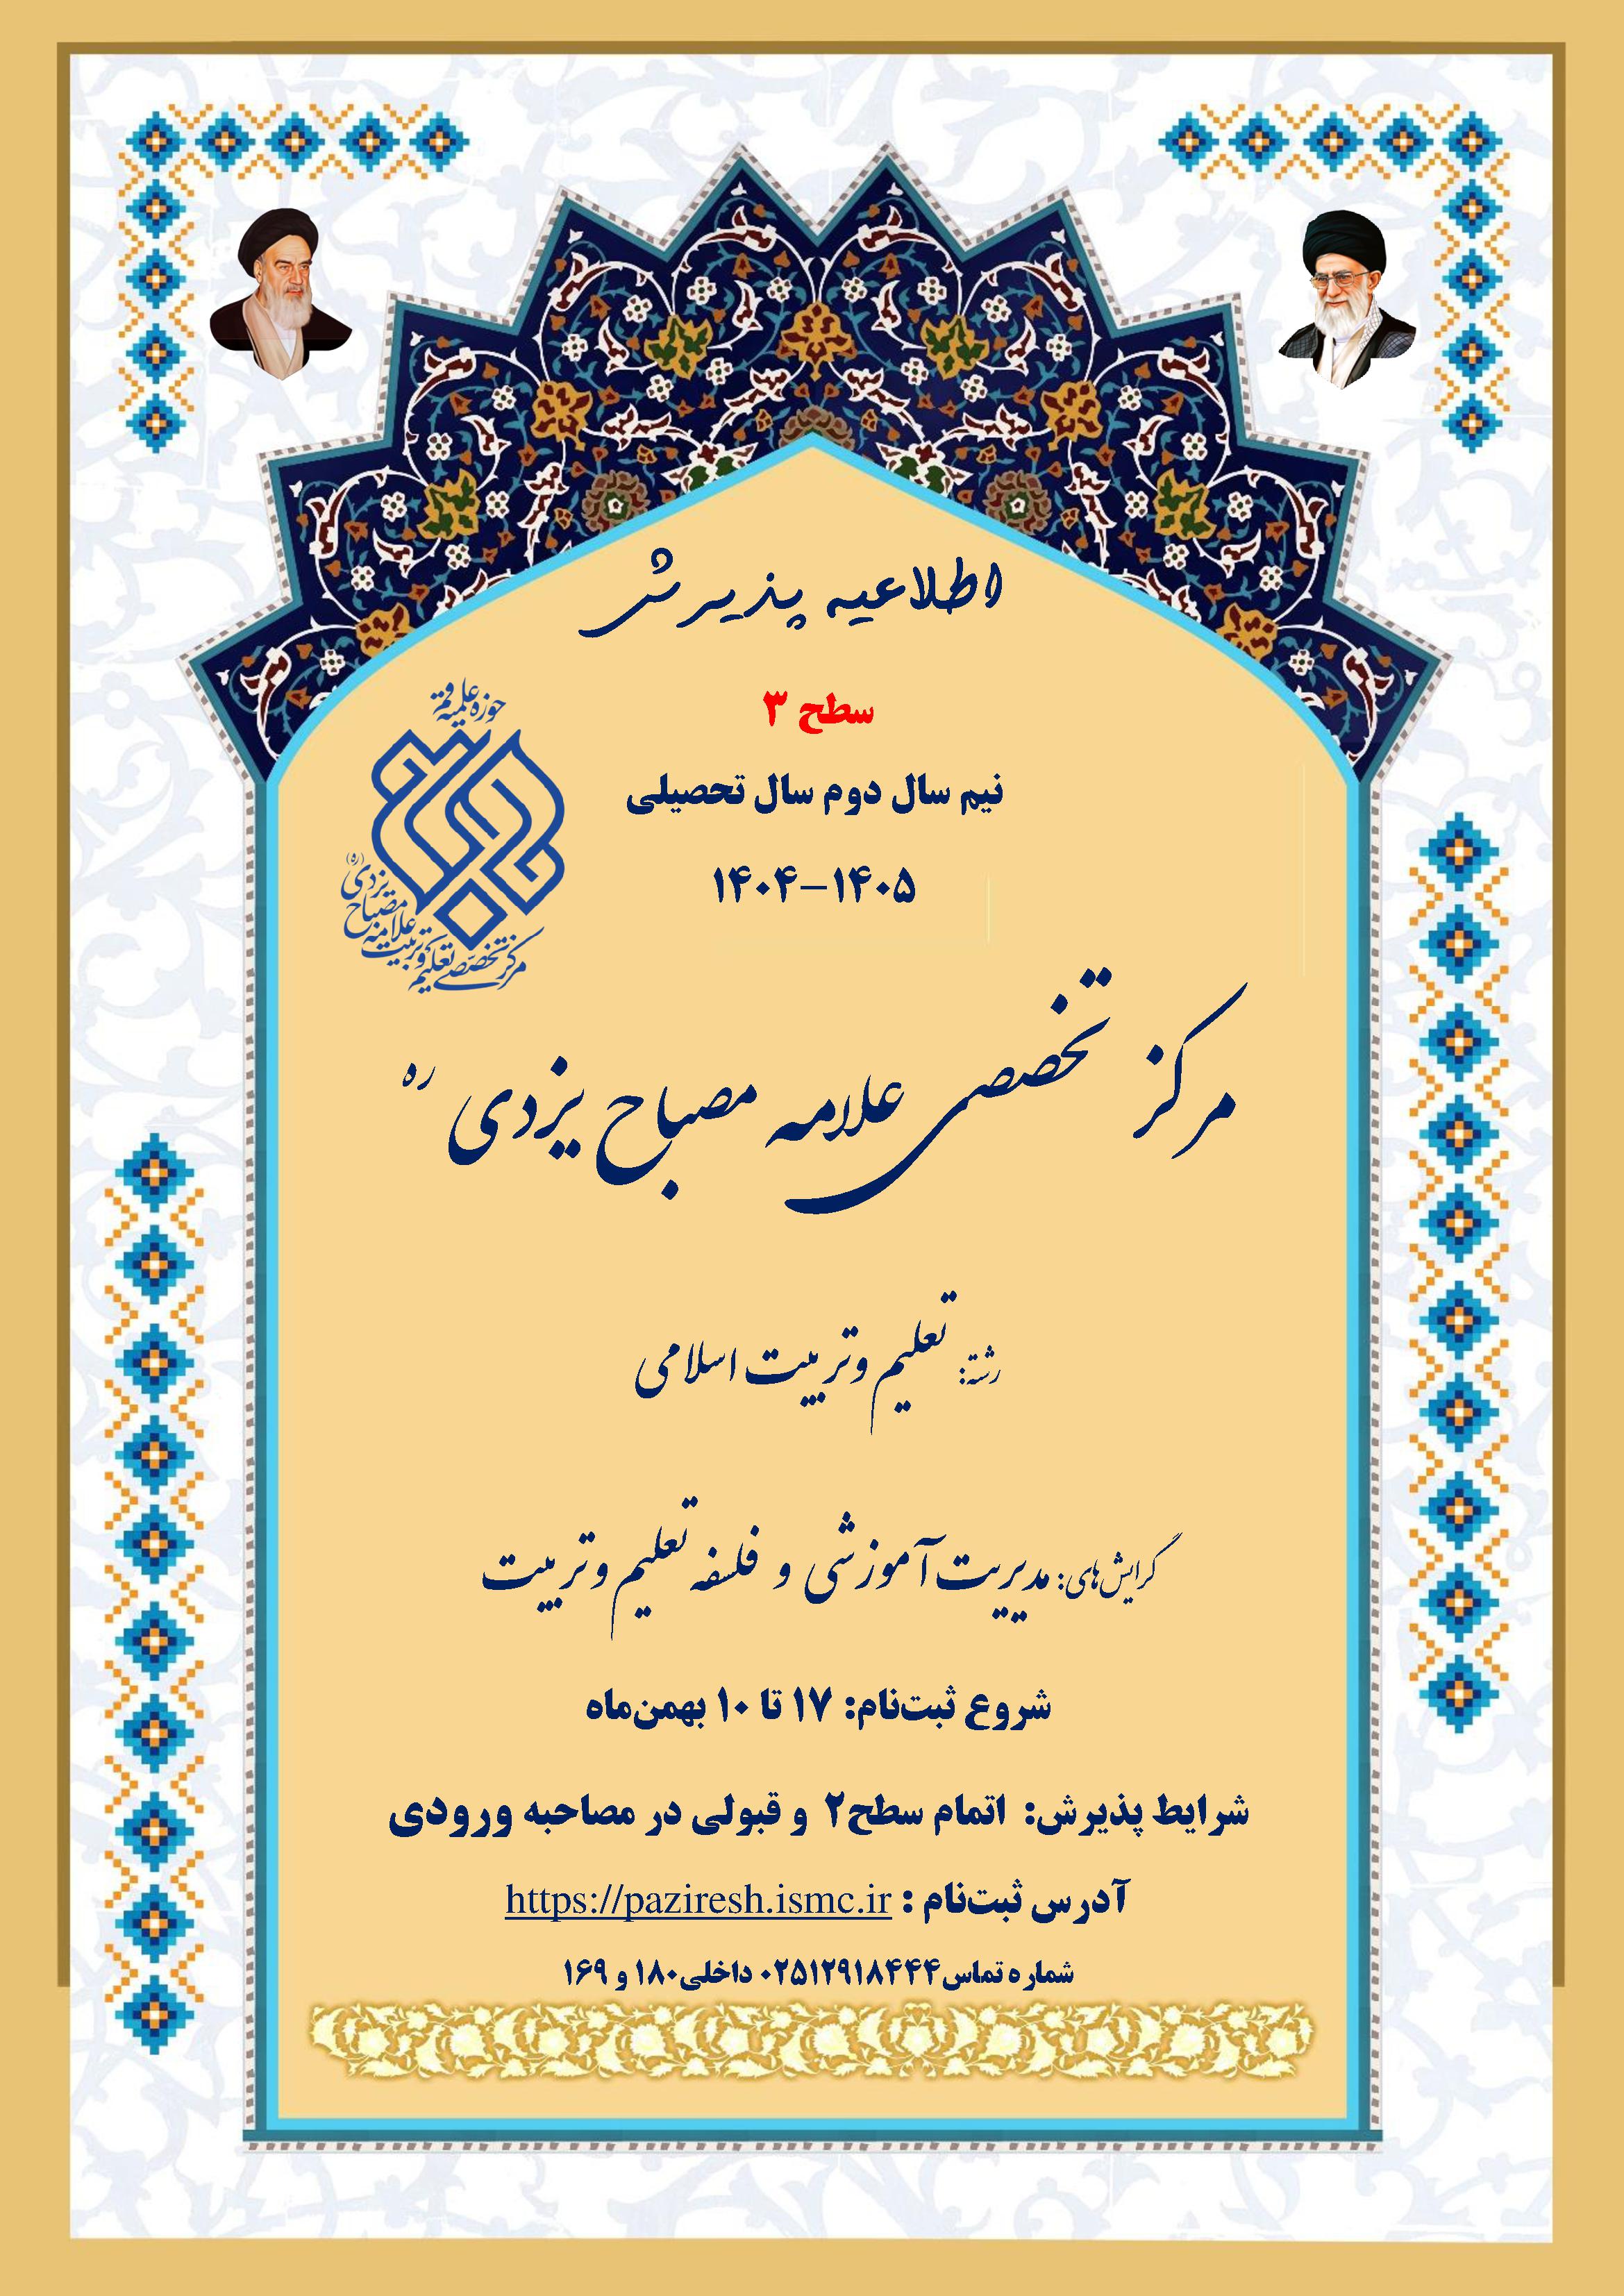 اطلاعیه پذیرش
سطح ۳
نیم سال دوم سال تحصیلی
۱۴۰۴-۱۴۰۵
حوزه علمیه قم
مرکز تخصصی تعلیم و تربیت علامه مصباح یزدی (ره)
مرکز تخصصی علامه مصباح یزدی ره
رشته: تعلیم و تربیت اسلامی
گرایش‌های: مدیریت آموزشی و فلسفه تعلیم و تربیت
شروع ثبت‌نام: ۱۷ تا ۱۰ بهمن‌ماه
شرایط پذیرش: اتمام سطح۲ و قبولی در مصاحبه ورودی
آدرس ثبت‌نام : https://paziresh.ismc.ir
شماره تماس۰۲۵۱۲۹۱۸۴۴۴ داخلی۱۸۰ و ۱۶۹